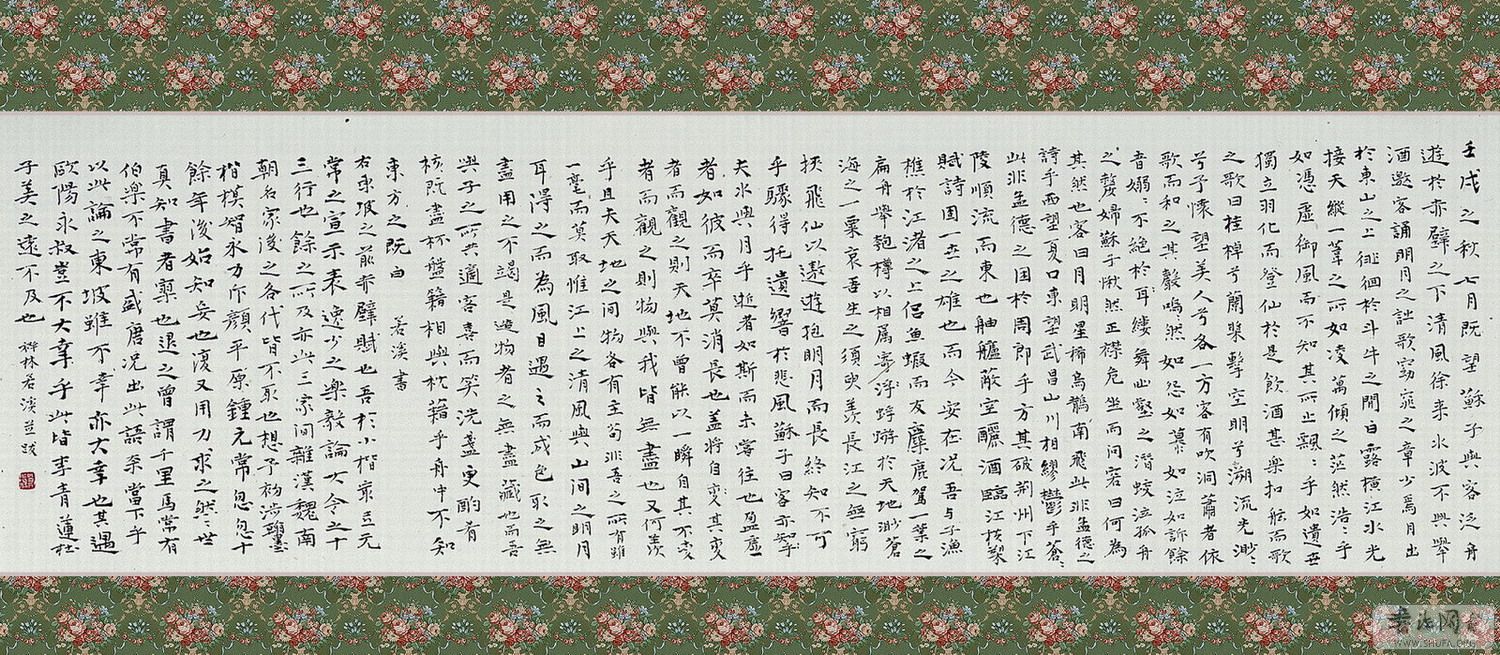 壬戌之秋七月既望蘇子與客泛舟
遊於赤壁之下清風徐来水波不興舉
酒邀客誦明月之詩歌窈窕之章少焉月出
於東山之上徘徊於斗牛之間白露橫江水光
接天縱一葦之所如凌萬傾之茫然浩:乎
如憑虛御風而不知其所止飄:乎如遺世
獨立羽化而登仙於是飲酒甚樂扣舷而歌
之歌曰桂棹兮蘭槳擊空明兮溯流光渺:
兮予懷望美人兮各一方客有吹洞簫者依
歌而和之其聲嗚然如怨如慕如泣如訴餘
音嫋:不絕於耳縷舞幽壑之潛蛟泣孤舟
之嫠婦蘇子愀然正襟危坐而問客曰何為
其然也客曰月明星稀烏鵲南飛此非孟德之
詩乎西望夏口東望武昌山川相繆鬱乎蒼:
此非孟德之困於周郎乎方其破荊州下江
陵順流而東也舳艫蔽空釃酒臨江橫槊
賦詩固一世之雄也而今安在况吾与子漁
樵於江渚之上侶魚蝦而友麋鹿駕一葉之
扁舟舉匏樽以相屬寄浮蜉蝣於天地渺蒼
海之一粟哀吾生之須臾羨長江之無窮
挾飛仙以遨遊抱明月而長終知不可
乎驟得托遺響於悲風蘇子曰客亦知乎
夫水與月乎逝者如斯而未嘗往也盈虛
者如彼而卒莫消長也蓋將自其變
者而觀之則天地不曾能以一瞬自其不變
者而觀之則物與我皆無盡也又何羨
乎且夫天地之間物各有主苟非吾之所有雖
一毫而莫取惟江上之清風與山间之明月
耳得之而為風目遇之而成色取之無
盡用之不竭是造物者之無盡藏也而吾
與子之所共適客喜而笑洗盞更酌肴
核既盡杯盤籍相與枕藉乎舟中不知
東方之既白 若溪書
右東坡之前赤壁賦也吾於小楷竟立元
常之宣示表逸少之樂毅論大令之十
三行也餘之所及亦此三家间雜漢魏南
朝名家後之各代皆不取也想予初涉翰墨
楷模智永力师顔平原鍾元常忽忽十
餘年後始知妥也復又用力求之然:世
真知書者寡也退之曾謂千里馬常有
伯樂不常有盛唐况出此語柰當下乎
以此論之東坡雖不幸亦大幸也其遇
歐陽永叔豈不大幸乎此皆李青蓮杜
子美之遠不及也 禪林若溪並跋
书法网
WWW.SHUFA.ORG